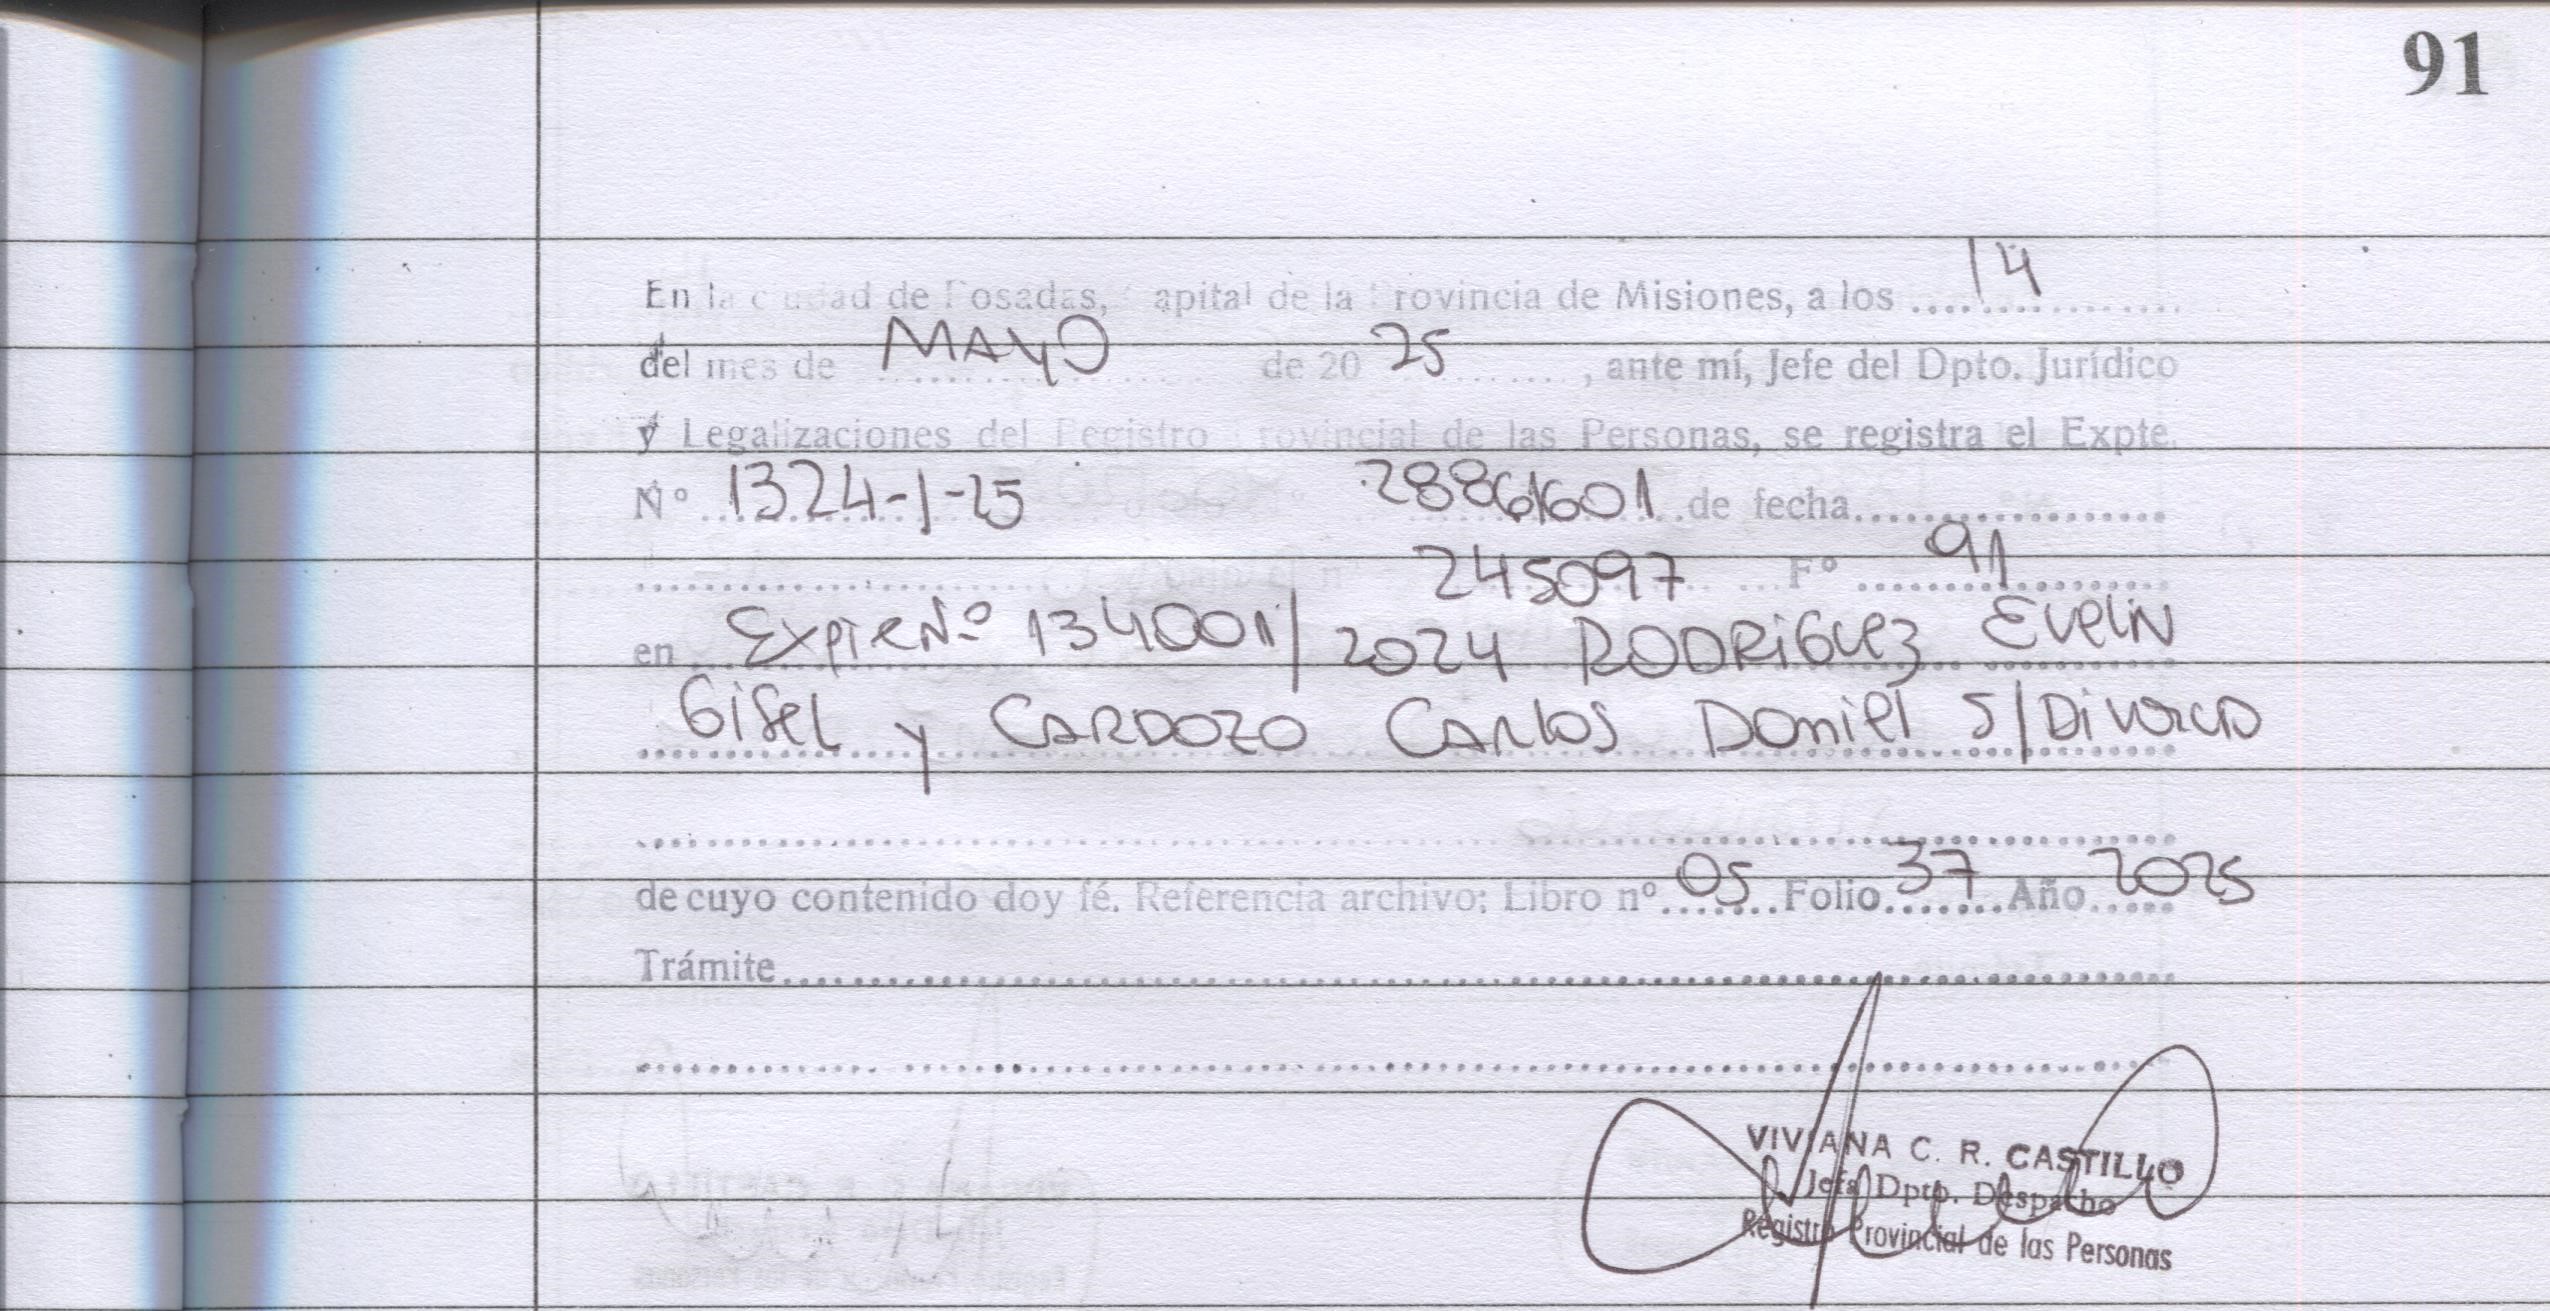 91
En la ciudad de Posadas, Capital de la Provincia de Misiones, a los 14
del mes de MAYO de 20 25, ante mí, Jefe del Dpto. Jurídico
y Legalizaciones del Registro Provincial de las Personas, se registra el Expte.
Nº 1324-1-25 28861601 de fecha
245097 Fº 91
en Expte Nº 134001/2024 RODRIGUEZ EVELIN
GISEL y CARDOZO CARLOS DANIEL S/DIVORCIO
de cuyo contenido doy fé. Referencia archivo: Libro nº 05 Folio 37 Año 2025
Trámite
VIVIANA C. R. CASTILLO
Jefa Dpto. Despacho
Registro Provincial de las Personas